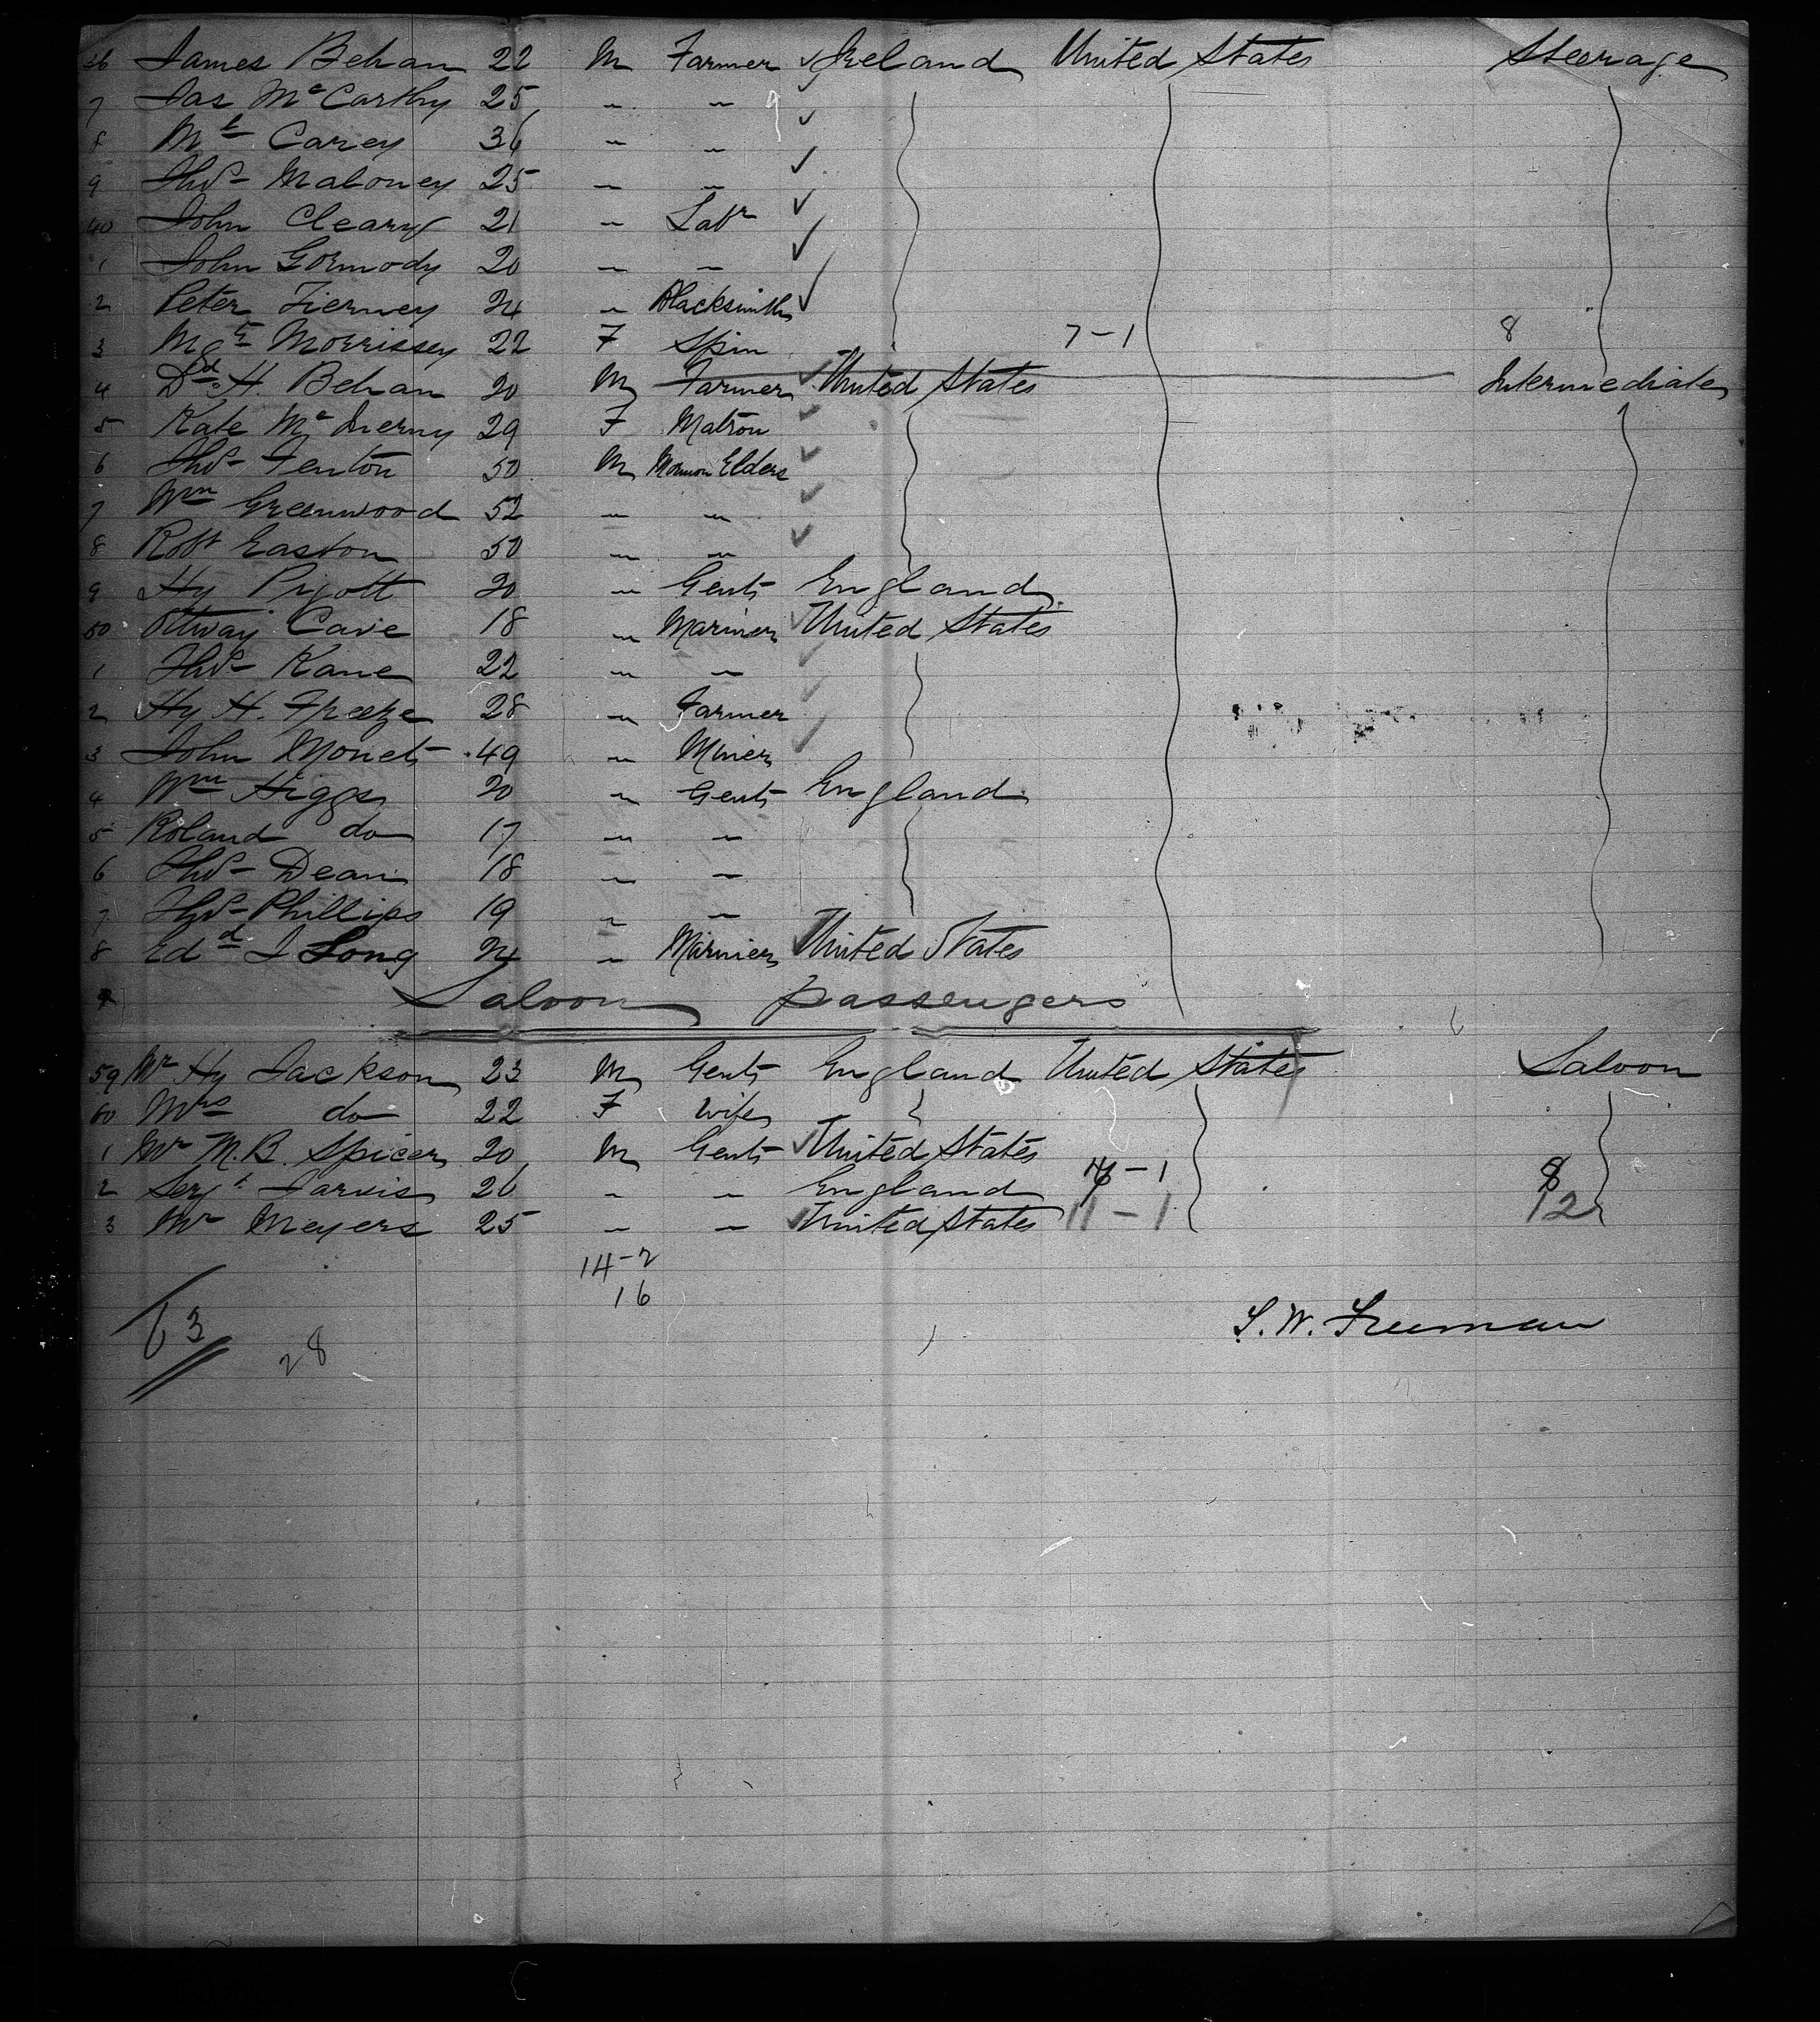 36 James Behan 22 M Farmer ✓ Ireland United States Steerage
7 Jas McCarthy 25 " " ✓
8 Mt Carey 36 " " ✓
9 Thos Maloney 25 " " ✓
40 John Cleary 21 " Labr ✓
1 John Gormody 20 " " ✓
2 Peter Tierney 24 " Blacksmith ✓
3 Mgt Morrissey 22 F Spin 7-1 8
4 Dd H. Behan 20 M Farmer ✓ United States Intermediate
5 Kate McInerny 29 F Matron ✓
6 Thos Fenton 50 M Mormon Elders ✓
7 Wm Greenwood 52 " " ✓
8 Robt Easton 50 " " ✓
9 Hy Pigott 20 " Gent England
50 Ottway Cave 18 " Mariner ✓ United States
1 Thos Kane 22 " " ✓
2 Hy H. Freeze 28 " Farmer ✓
3 John Monet 49 " Miner ✓
4 Wm Higgs 20 " Gent England
5 Roland do 17 " "
6 Thos Dean 18 " "
7 Thos Phillips 19 " "
8 Edd J Long 24 " Mariner ✓ United States
Saloon passengers
59 Mr Hy Jackson 23 M Gent England United States Saloon
60 Mrs do 22 F Wife
1 Mr M.B. Spicer 20 M Gent ✓ United States
2 Sergt Jarvis 26 " " England -1 8
3 Mr Meyers 25 " " ✓ United States 11-1 12
14-2
16
63
28
S. W. Freeman